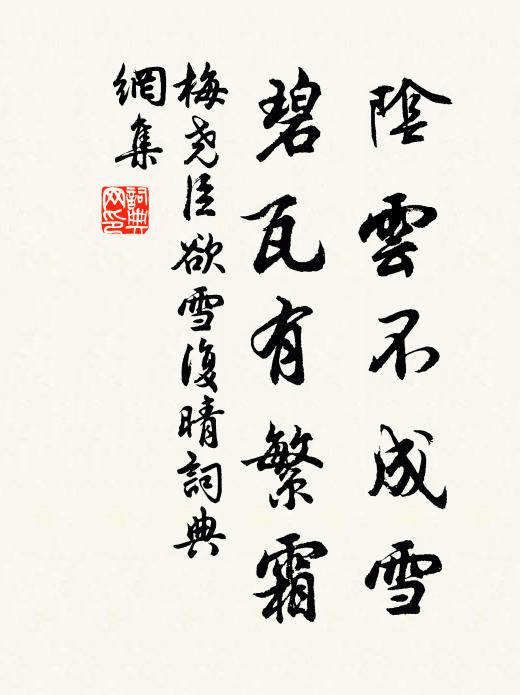 陰雲不成雪
碧瓦有繁霜
梅尧臣欲雪復晴詞典
網集
詞典
网印